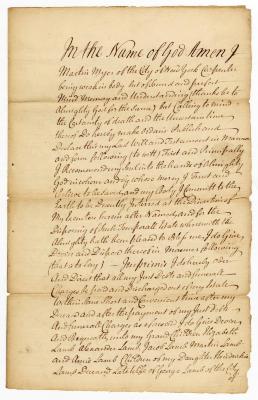 In the Name of God Amen I
Martin Myer of the City of New York Carpenter
being weak in body but of Sound and perfect
Mind Memory and Understanding (thanks be to
Almighty God for the Same) but Calling to mind
the Certainty of death and the time
thereof Do hereby make ordain Publish and
Declare this my Last Will and Testament in manner
and form following (to wit) First and Principally
I Recommend my Soul in the hands of Almighty
God in whom and by whose mercy I Trust and
to be Saved and my Body I Commit to the
Earth to be Decently Interred at the Discretion of
my Executors herein after Named and for the
Disposing of Such Temporal Estate wherewith the
Almighty hath been pleased to Bless me I do Give
Devise and Dispose thereof in Manner following
that is to Say) Imprimis I do hereby order
And Direct that all my Just Debts and funeral
Charges be paid and Discharged out of my Estate
within Some Short and Convenient time after my
Decease and after the payment of my Just Debts
And funeral Charges as aforesaid I do Give Devise
And Bequeath unto my Grand Children Elizabeth
Lamb Alexander Lamb Jacob Lamb Martin Lamb
and Annie Lamb Children of my Daughter
Lamb Deceased Late Wife of George Lamb of the City